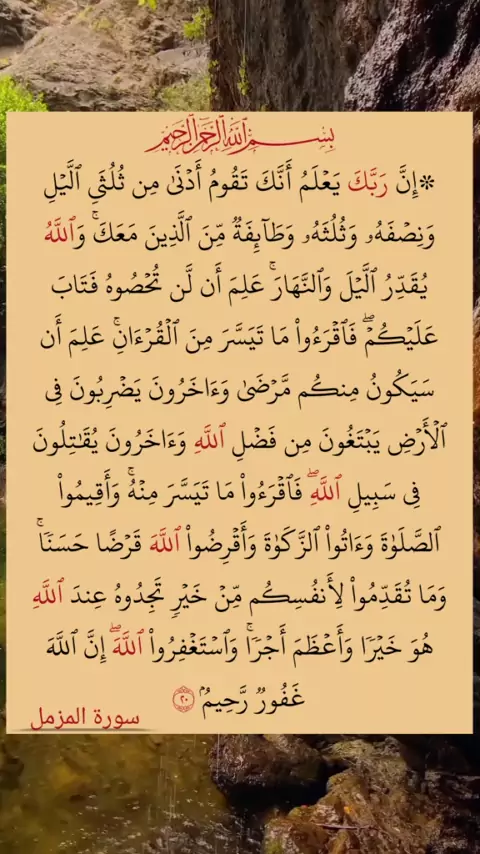 بِسْمِ اللَّهِ الرَّحْمَٰنِ الرَّحِيمِ
۞إِنَّ رَبَّكَ يَعۡلَمُ أَنَّكَ تَقُومُ أَدۡنَىٰ مِن ثُلُثَيِ ٱلَّيۡلِ
وَنِصۡفَهُۥ وَثُلُثَهُۥ وَطَآئِفَةٞ مِّنَ ٱلَّذِينَ مَعَكَۚ وَٱللَّهُ
يُقَدِّرُ ٱلَّيۡلَ وَٱلنَّهَارَۚ عَلِمَ أَن لَّن تُحۡصُوهُ فَتَابَ
عَلَيۡكُمۡۖ فَٱقۡرَءُواْ مَا تَيَسَّرَ مِنَ ٱلۡقُرۡءَانِۚ عَلِمَ أَن
سَيَكُونُ مِنكُم مَّرۡضَىٰ وَءَاخَرُونَ يَضۡرِبُونَ فِي
ٱلۡأَرۡضِ يَبۡتَغُونَ مِن فَضۡلِ ٱللَّهِ وَءَاخَرُونَ يُقَٰتِلُونَ
فِي سَبِيلِ ٱللَّهِۖ فَٱقۡرَءُواْ مَا تَيَسَّرَ مِنۡهُۚ وَأَقِيمُواْ
ٱلصَّلَوٰةَ وَءَاتُواْ ٱلزَّكَوٰةَ وَأَقۡرِضُواْ ٱللَّهَ قَرۡضًا حَسَنٗاۚ
وَمَا تُقَدِّمُواْ لِأَنفُسِكُم مِّنۡ خَيۡرٖ تَجِدُوهُ عِندَ ٱللَّهِ
هُوَ خَيۡرٗا وَأَعۡظَمَ أَجۡرٗاۚ وَٱسۡتَغۡفِرُواْ ٱللَّهَۖ إِنَّ ٱللَّهَ
غَفُورٞ رَّحِيمُۢ ٢٠
سورة المزمل